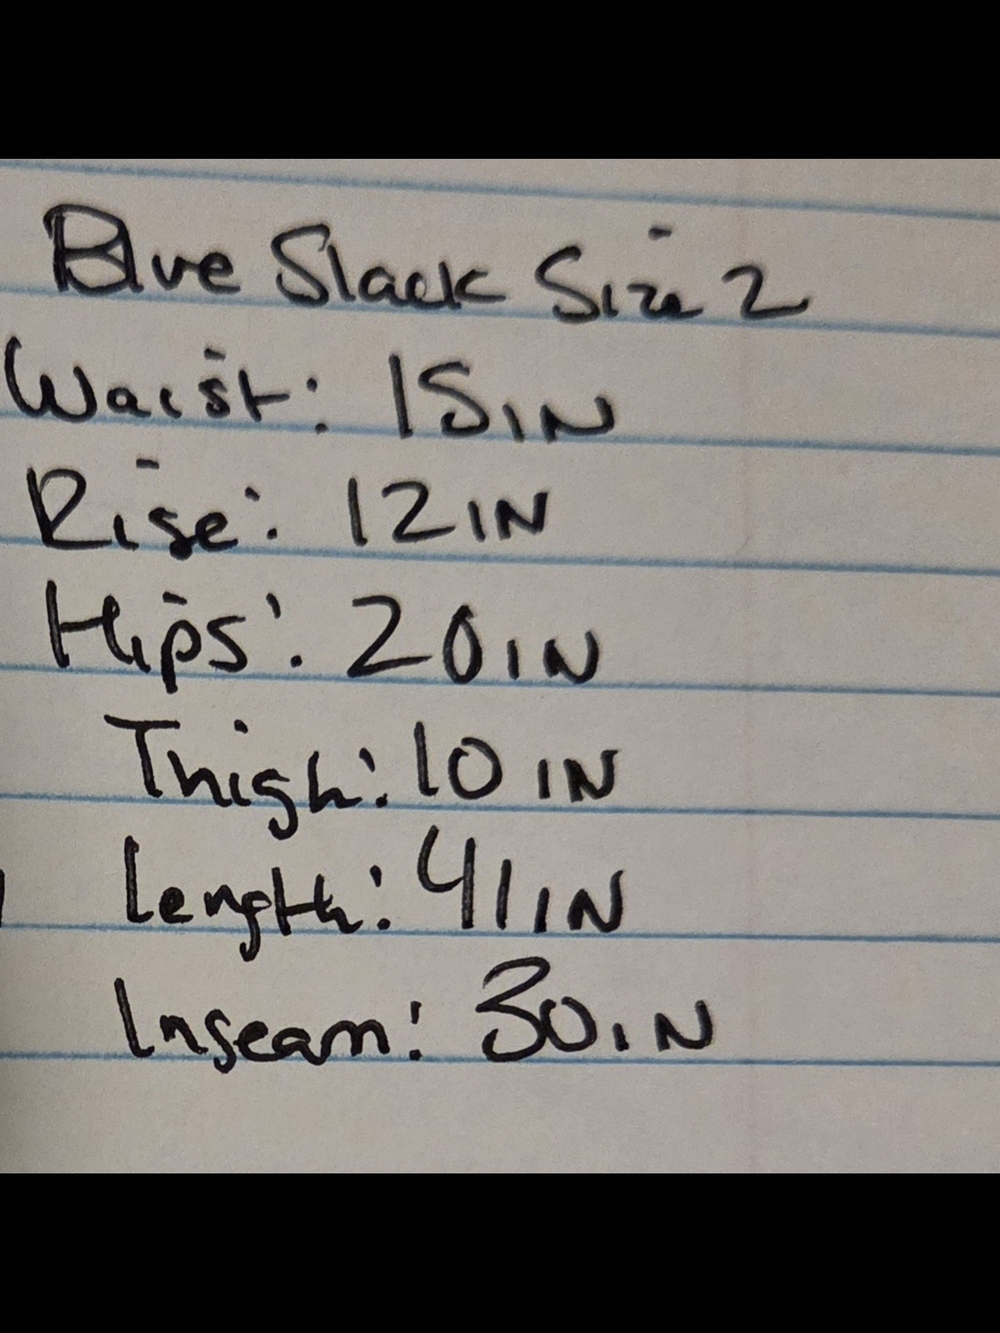 Blue Slack Size 2
Waist: 15IN
Rise: 12IN
Hips: 20IN
Thigh: 10 IN
Length: 41IN
Inseam: 30IN